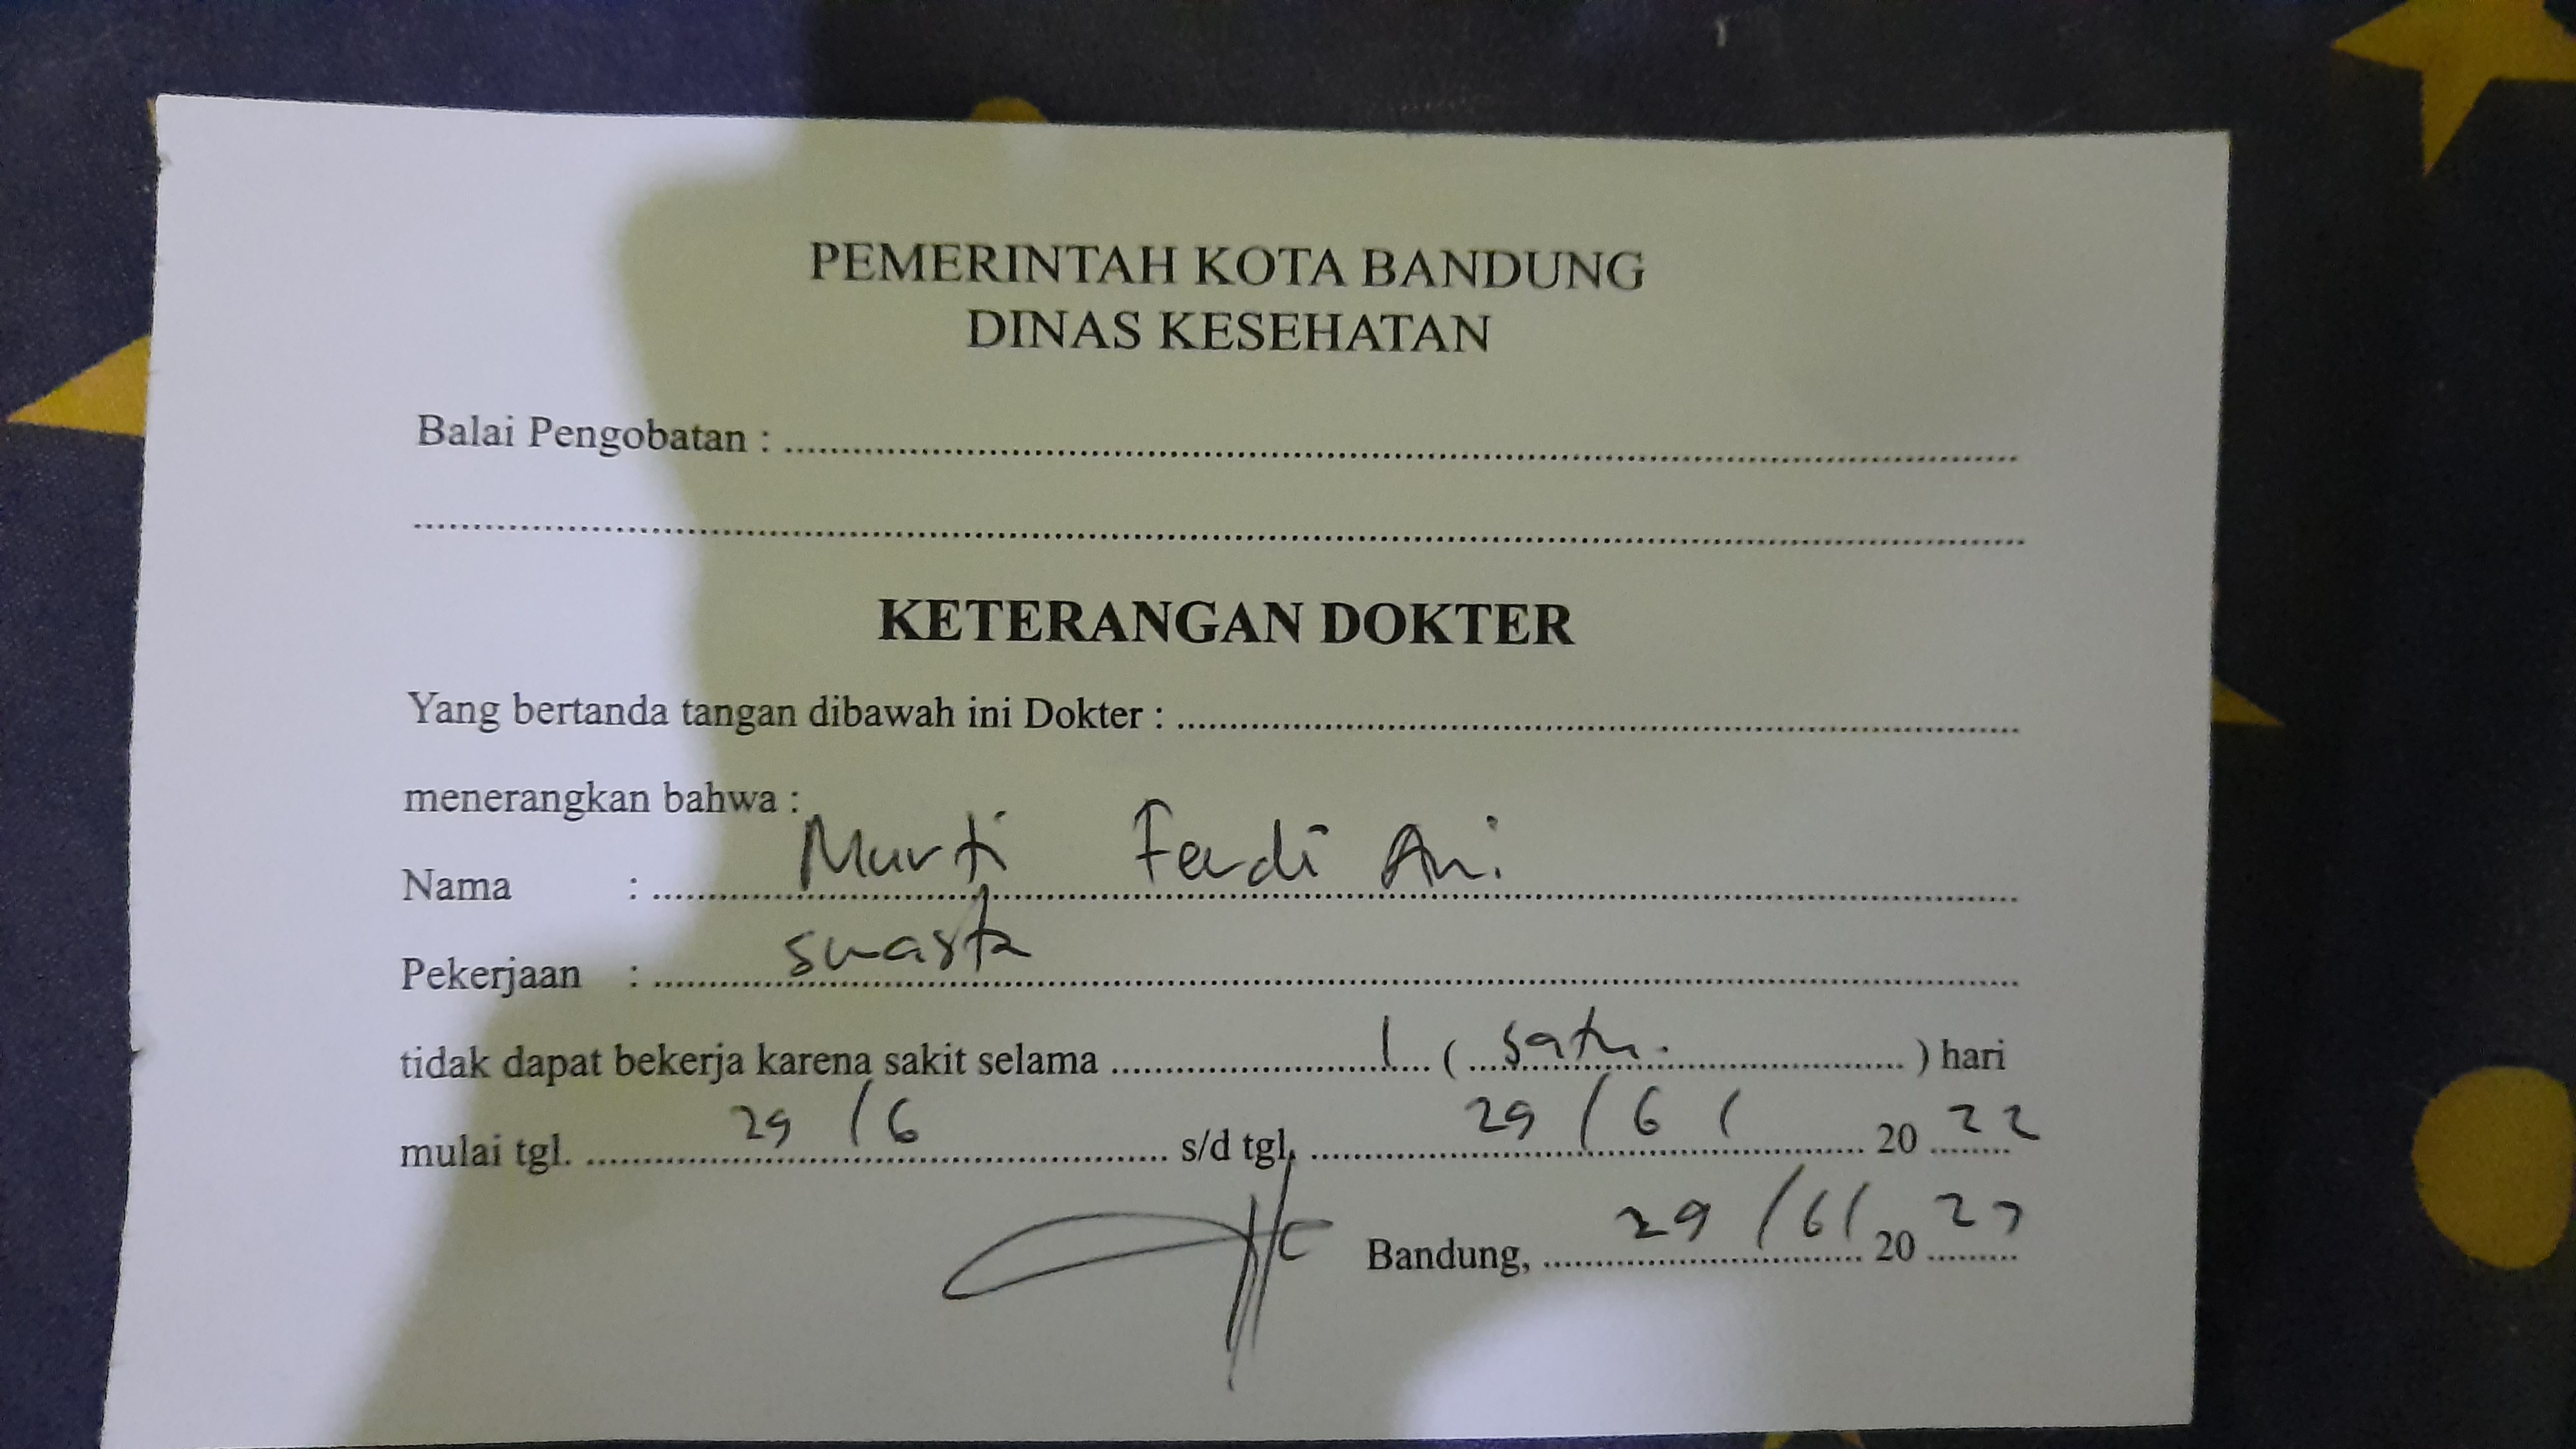 PEMERINTAH KOTA BANDUNG
DINAS KESEHATAN
Balai Pengobatan : ................
................
KETERANGAN DOKTER
Yang bertanda tangan dibawah ini Dokter : ................
menerangkan bahwa :
Nama : Murti Ferdi Ari
Pekerjaan : swasta
tidak dapat bekerja karena sakit selama 1 ( satu. ) hari
mulai tgl. 29 / 6 s/d tgl. 29 / 6 / 20 22
Bandung, 29 / 6 / 20 22